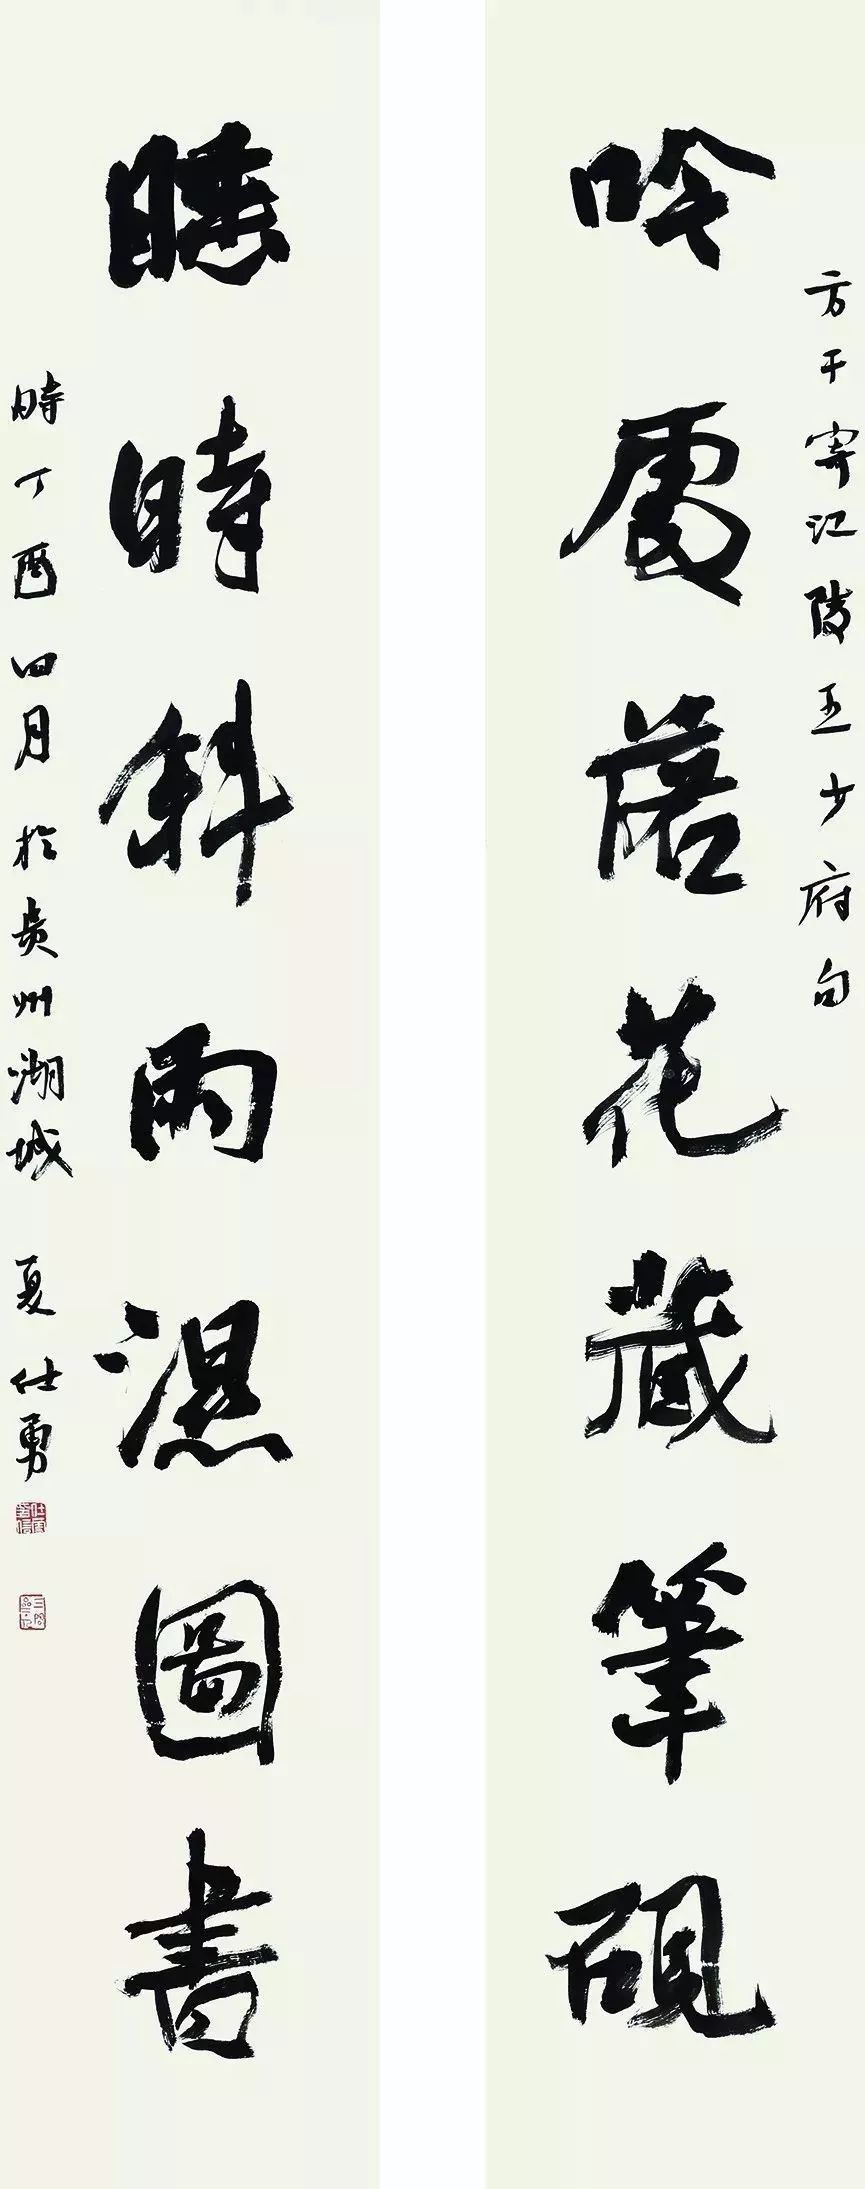 方干寄江陵王少府句
吟處落花藏筆硯
睡時斜雨濕圖書
時丁酉四月於贵州湖城 夏仕勇